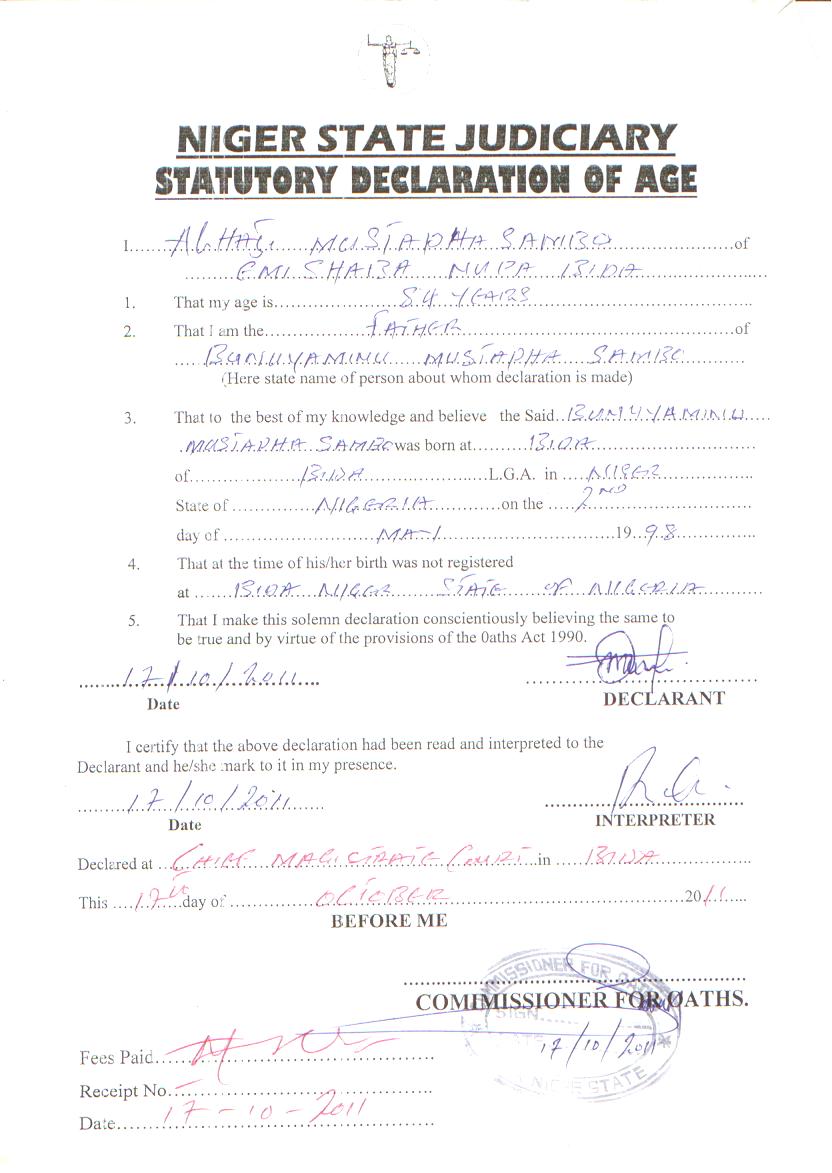 NIGER STATE JUDICIARY
STATUTORY DECLARATION OF AGE
I......ALHAJI MUSTAPHA SAMBO......of
......EMI SHABA NUPA BIDA......
1. That my age is......54 YEARS......
2. That I am the......FATHER......of
......BUNUYAMINU MUSTAPHA SAMBO......
(Here state name of person about whom declaration is made)
3. That to the best of my knowledge and believe the Said..BUNUYAMINU....
.MUSTAPHA SAMBO was born at......BIDA......
of......BIDA......L.G.A. in ...NIGER......
State of......NIGERIA......on the ...2ND......
day of......MAY......19..98......
4. That at the time of his/her birth was not registered
at ......BIDA NIGER STATE OF NIGERIA......
5. That I make this solemn declaration conscientiously believing the same to
be true and by virtue of the provisions of the 0aths Act 1990.
......17/10/2011......
Date
DECLARANT
I certify that the above declaration had been read and interpreted to the
Declarant and he/she mark to it in my presence.
......17/10/2011......
Date
INTERPRETER
Declared at ..CHIEF MAGISTRATE COURT..in ......BIDA......
This ....17th..day of ......OCTOBER......2011.....
BEFORE ME
COMIMISSIONER FOR OATHS.
COMMISSIONER FOR OATHS
SIGN
17/10/2011
STATE
Fees Paid......
Receipt No......
Date......17-10-2011......